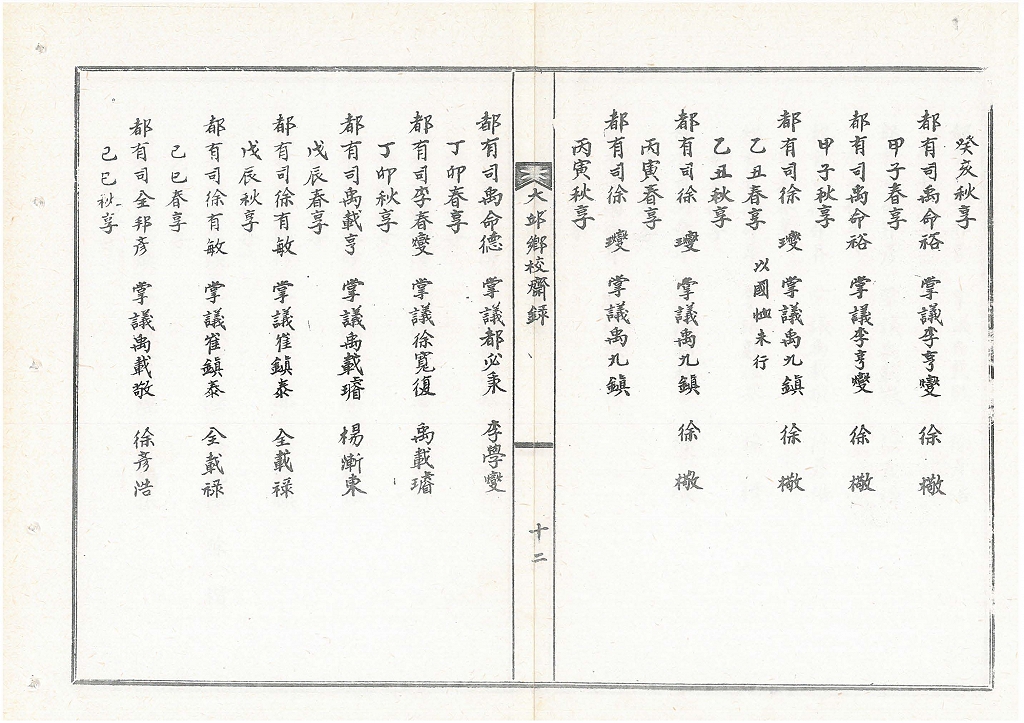 癸亥秋享
都有司禹命裕 掌議李亨燮 徐 㯳
甲子春享
都有司禹命裕 掌議李亨燮 徐 㯳
甲子秋享
都有司徐 㻻 掌議禹九鎭 徐 㯳
乙丑春享 以國恤未行
乙丑秋享
都有司徐 㻻 掌議禹九鎭 徐 㯳
丙寅春享
都有司徐 㻻 掌議禹九鎭
丙寅秋享
大邱鄕校齋錄
十二
都有司禹命德 掌議都必秉 李學燮
丁卯春享
都有司李春燮 掌議徐寬復 禹載璿
丁卯秋享
都有司禹載亨 掌議禹載璿 楊漸東
戊辰春享
都有司徐有敏 掌議崔鎭泰 全載祿
戊辰秋享
都有司徐有敏 掌議崔鎭泰 全載祿
己巳春享
都有司全邦彦 掌議禹載敬 徐彦浩
己巳秋享